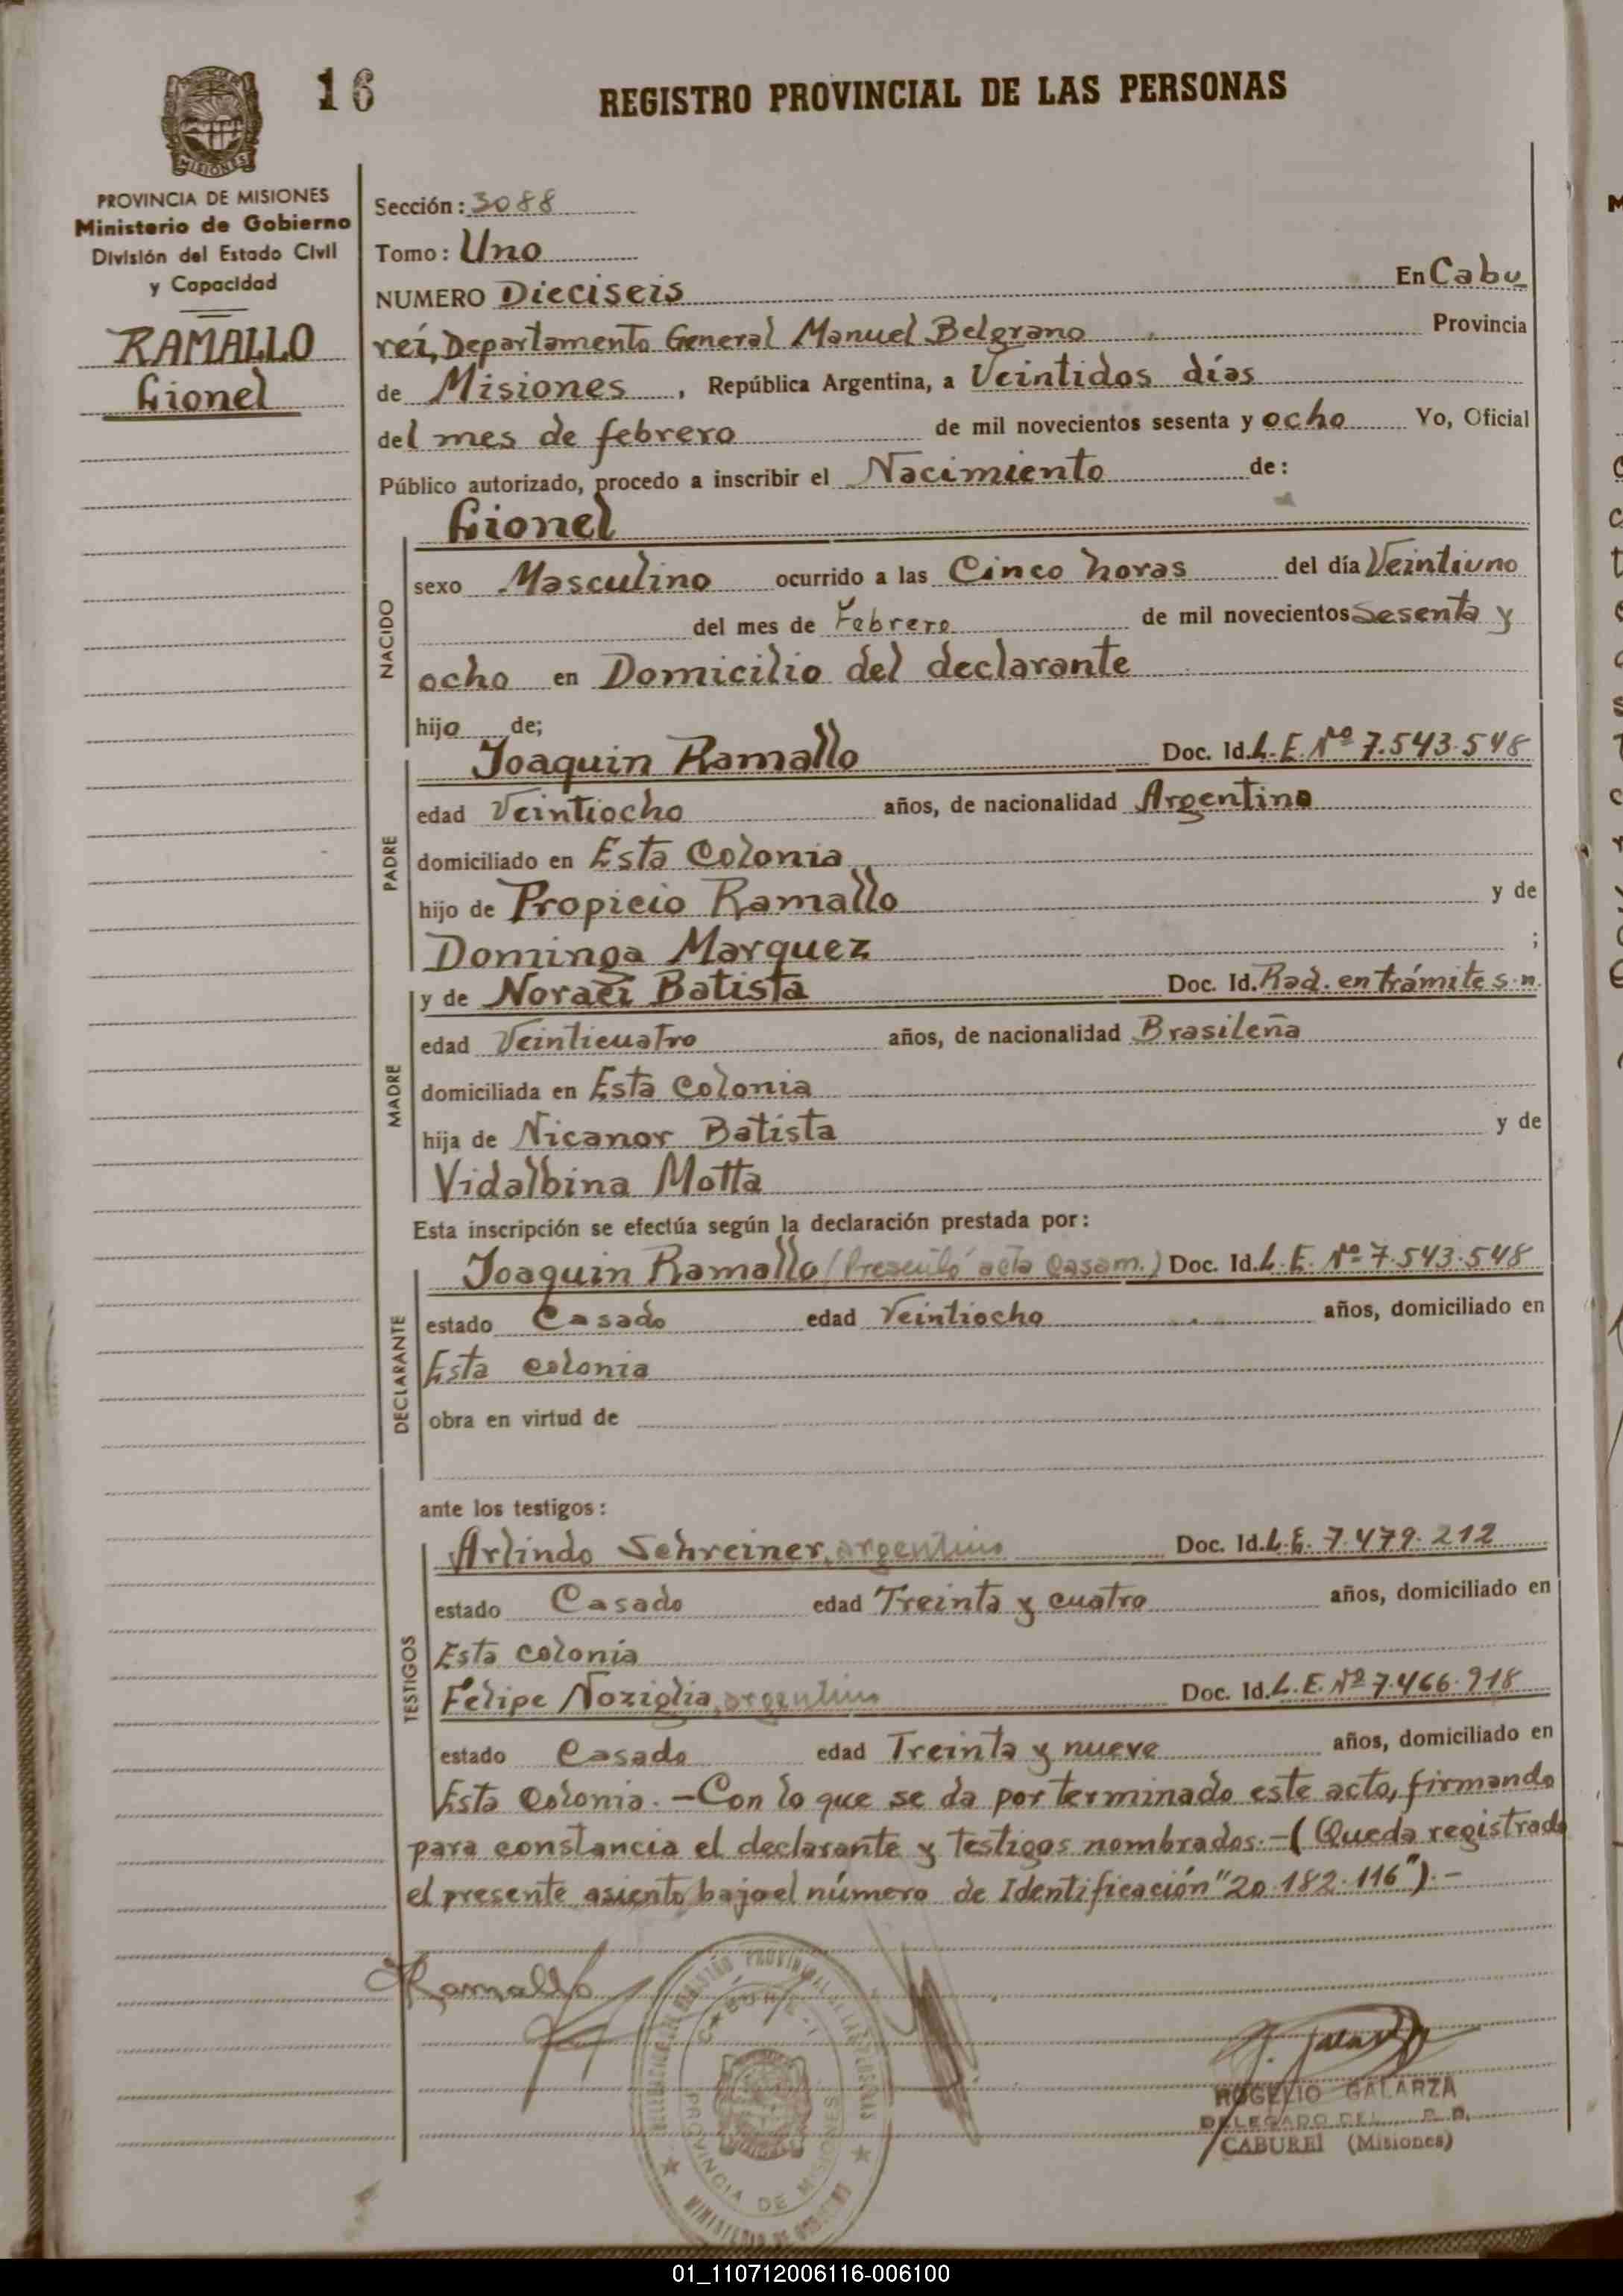 16
REGISTRO PROVINCIAL DE LAS PERSONAS
MISIONES
PROVINCIA DE MISIONES
Ministerio de Gobierno
División del Estado Civil
y Capacidad
RAMALLO
Lionel
Sección: 3088
Tomo: Uno
NUMERO Dieciseis En Cabu
reí, Departamento General Manuel Belgrano Provincia
de Misiones, República Argentina, a Veintidos días
del mes de febrero de mil novecientos sesenta y ocho Yo, Oficial
Público autorizado, procedo a inscribir el Nacimiento de:
NACIDO
Lionel
sexo Masculino ocurrido a las Cinco horas del día Veintiuno
del mes de Febrero de mil novecientos Sesenta y
ocho en Domicilio del declarante
hijo de;
PADRE
Joaquin Ramallo Doc. Id. L. E. Nº 7.543.548
edad Veintiocho años, de nacionalidad Argentino
domiciliado en Esta Colonia
hijo de Propicio Ramallo y de
Dominga Marquez ;
MADRE
y de Noraci Batista Doc. Id. Rad. en trámite s.n.
edad Veinticuatro años, de nacionalidad Brasileña
domiciliada en Esta Colonia
hija de Nicanor Batista y de
Vidalbina Motta
Esta inscripción se efectúa según la declaración prestada por:
DECLARANTE
Joaquin Ramallo (Presentó acta casam.) Doc. Id. L. E. Nº 7.543.548
estado Casado edad Veintiocho años, domiciliado en
Esta colonia
obra en virtud de
ante los testigos:
TESTIGOS
Arlindo Schreiner, argentino Doc. Id. L.E. 7.479.212
estado Casado edad Treinta y cuatro años, domiciliado en
Esta colonia
Felipe Noziglia, argentino Doc. Id. L. E. Nº 7.466.918
estado Casado edad Treinta y nueve años, domiciliado en
Esta Colonia.-Con lo que se da por terminado este acto, firmando
para constancia el declarante y testigos nombrados.-(Queda registrado
el presente asiento bajo el número de Identificación "20.182.116").-
Ramallo
PROVINCIA DE MISIONES
ROGELIO GALARZA
DELEGADO DEL R. P.
CABUREÍ (Misiones)
01_110712006116-006100